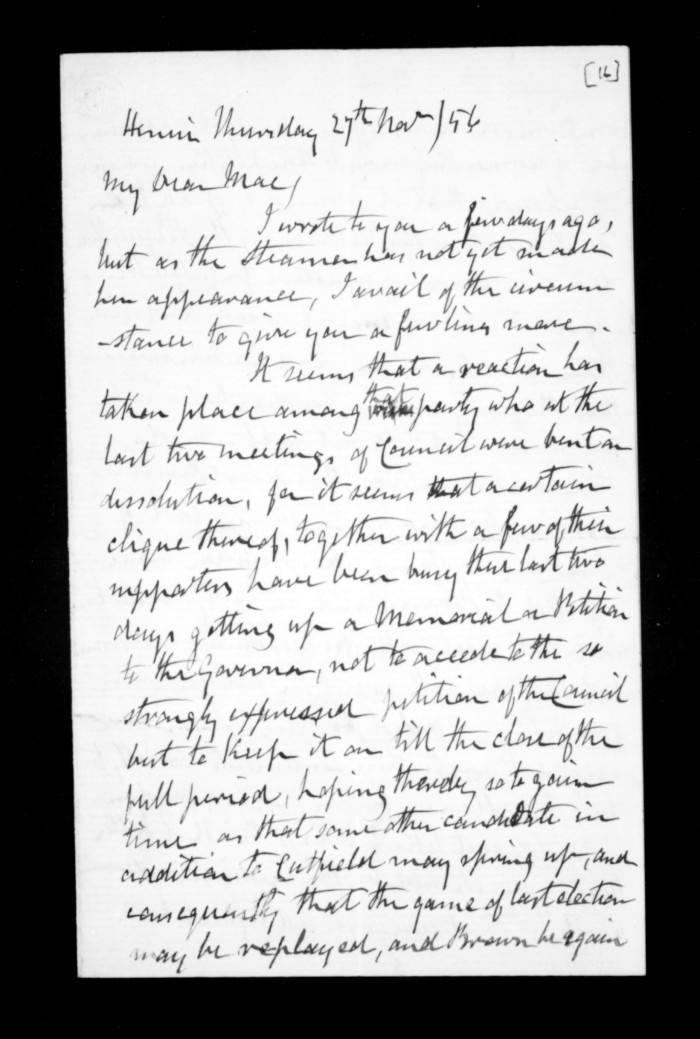 [16]
Henui Thursday 27th Nov /56
My Dear Mac,
I wrote to you a few days ago,
but as the Steamer has not yet made
her appearance, I avail of the circum
-stance to give you a few lines more.
It seems that a reaction has
taken place among that party who at the
last two meetings of Council were bent on
dissolution, for it seems that a certain
clique thereof, together with a few of their
supporters have been busy these last two
days getting up a Memorial or Petition
to the Governor, not to accede to the so
strongly expressed petition of the Council
but to keep it on till the close of the
full period, hoping thereby so to gain
time as that some other candidate in
addition to Cutfield may spring up, and
consequently that the game of last election
may be replayed, and Brown be again